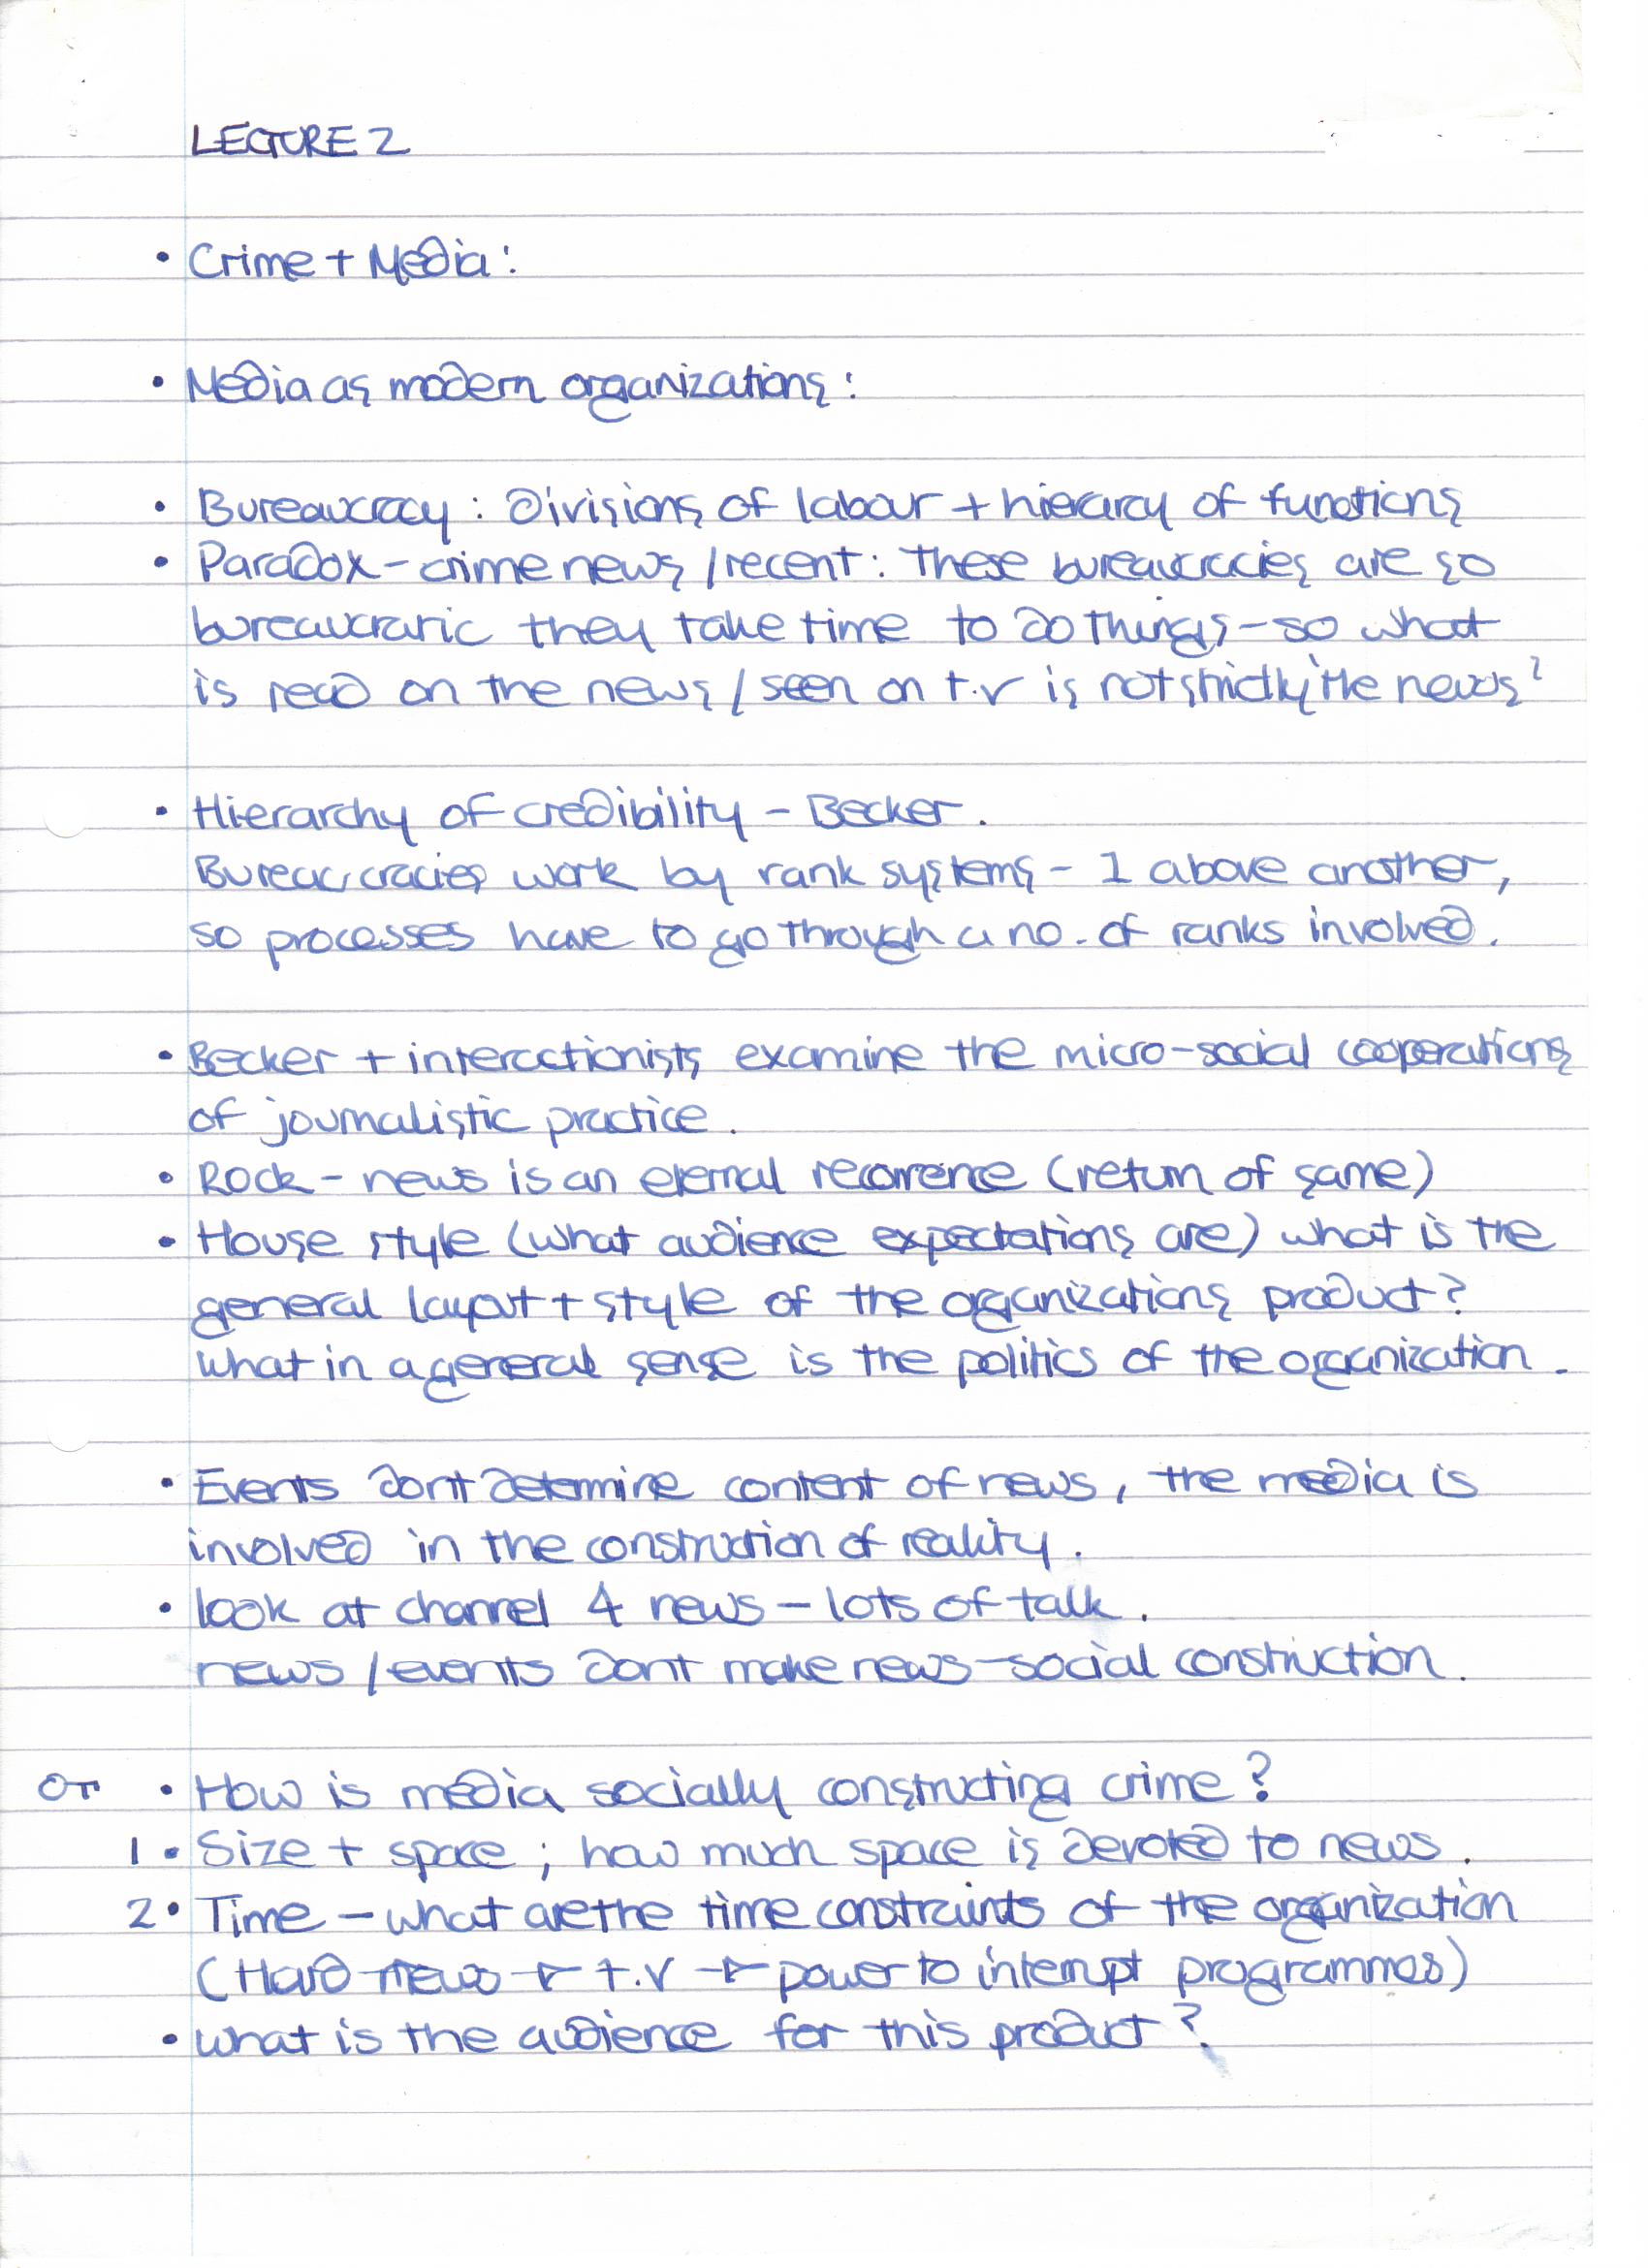 LECTURE 2
• Crime + Media:
• Media as modern organizations:
• Bureaucracy: Divisions of labour + hierarcy of functions
• Paradox - crime news / recent: These bureaucracies are so
bureaucratic they take time to do things - so what
is read on the news / seen on t.v is not strictly 'the news'
• Hierarchy of credibility - Becker.
Bureaucracies work by rank systems - 1 above another,
so processes have to go through a no. of ranks involved.
• Becker + interactionists examine the micro-social cooperations
of journalistic practice.
• Rock - news is an eternal recorrence (return of same)
• House style (what audience expectations are) what is the
general layout + style of the organizations product?
what in a general sense is the politics of the organization.
• Events dont determine content of news, the media is
involved in the construction of reality.
• look at channel 4 news - lots of talk.
news / events dont make news - social construction.
• How is media socially constructing crime?
1 • Size + space; how much space is devoted to news.
2 • Time - what are the time constraints of the organization
(Hard news → t.v → power to interrupt programmes)
• what is the audience for this product?